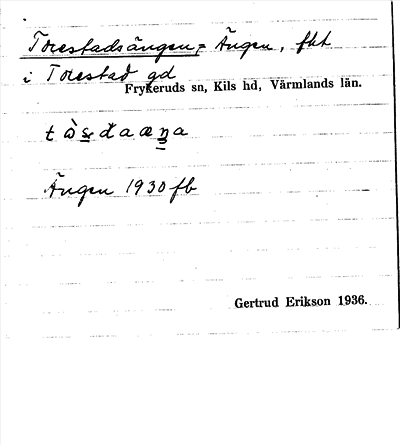 Torestadsängen,= Ängen, fht
i Torestad gd
Frykeruds sn, Kils hd, Värmlands län.
Ängen 1930 fb
Gertrud Erikson 1936.